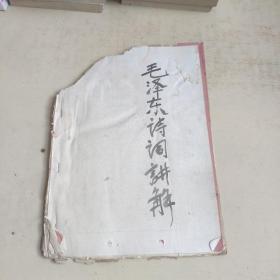 毛泽东诗词讲解